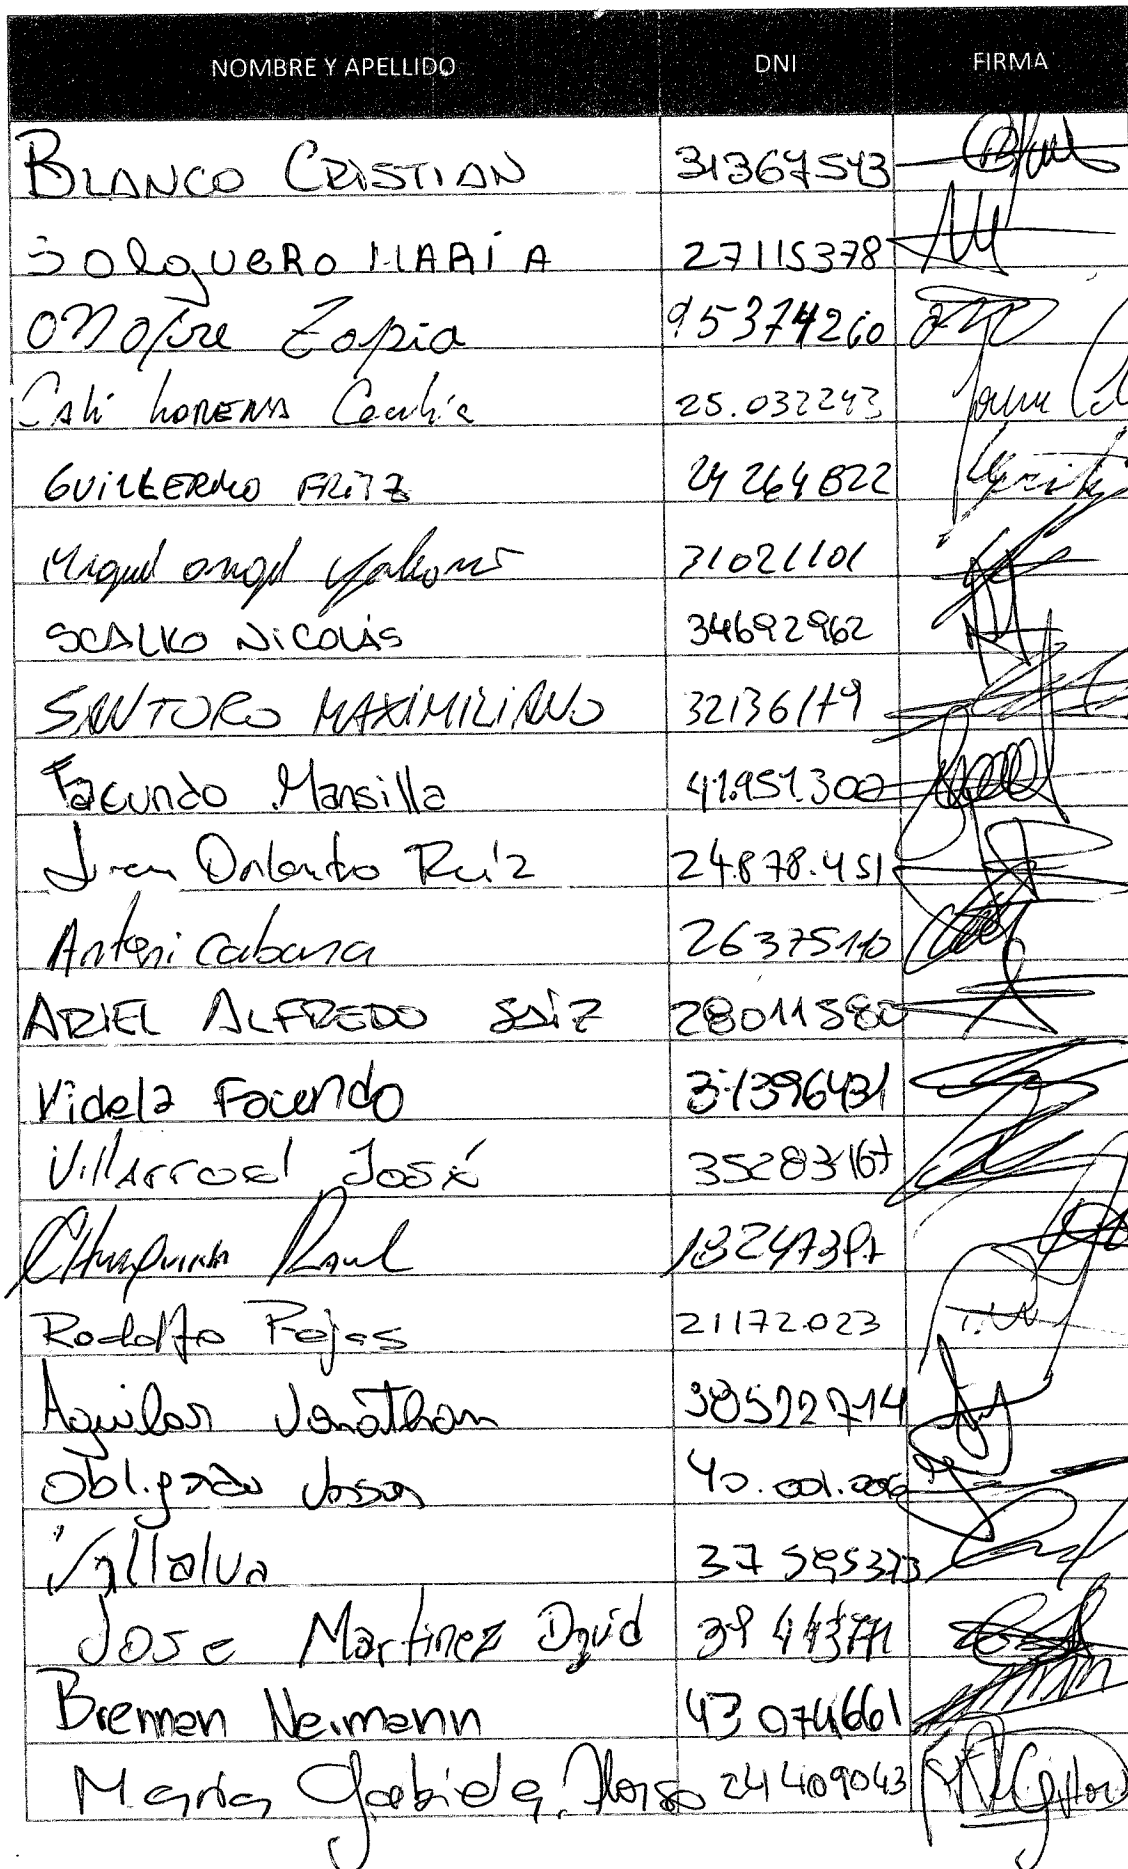 NOMBRE Y APELLIDO DNI FIRMA
BLANCO CRISTIAN 31367543
SOlQUERO MARÍA 27115378
Onofre Zapia 95374260
Cali LORENA Cecilia 25.032243
GUILLERMO FRITZ 24 264 822
Miguel angel 31021101
SCALKO NICOLÁS 34692962
SANTORO MAXIMILIANO 32136179
Facundo Mansilla 41.951.300
Juan Orlando Ruíz 24.878.451
Antoni cabana 26375110
ARIEL ALFREDO SAIZ 28011580
Videla Facundo 31396431
Villarroel José 35283167
Raul
Rodolfo Rojas 21172.023
Aguilar Jonathan 38522714
Obligado Jason 40.001.006
Villalva 37 595373
Jose Martinez David
Brennan Neimann 43 074661
Maria Gabriela Alonso 24409043